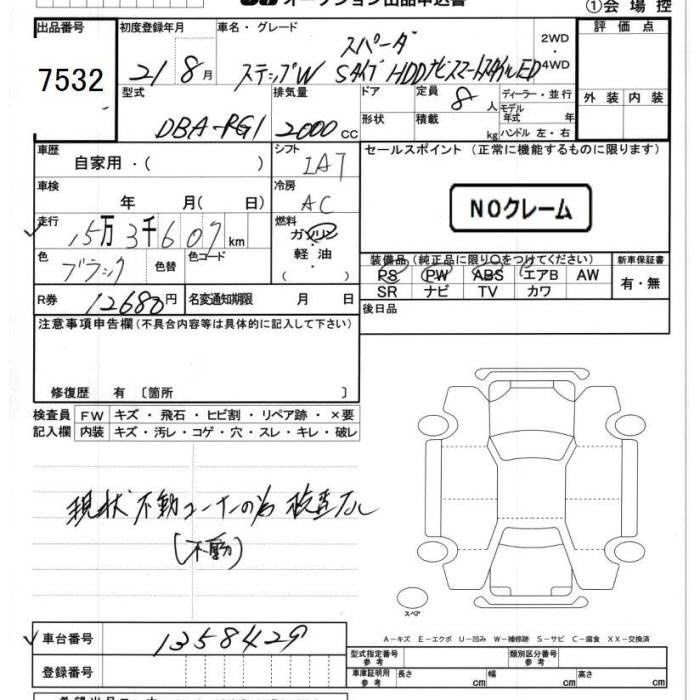 オークション出品申込書
①会場控
出品番号
7532
初度登録年月
21 8月
車名・グレード
スパーダ
ステップW Sタイプ HDDナビスマートスタイルED
2WD・4WD
評価点
外装 内装
型式
DBA-RG1
排気量
2000cc
ドア
形状
定員 8人
積載 kg
ディーラー・並行
モデル年式 年
ハンドル 左・右
車歴
自家用・( )
シフト
IAT
セールスポイント (正常に機能するものに限ります)
NOクレーム
車検
年 月( 日)
冷房
AC
走行
15万3千607km
燃料
ガソリン・軽油・( )
色
ブラック
色替
色コード
装備品 (純正品に限り○をつけてください)
PS PW ABS エアB AW
SR ナビ TV カワ
新車保証書
有・無
R券 12680円
名変通知期限 月 日
後日品
注意事項申告欄 (不具合内容等は具体的に記入して下さい)
修復歴 有 〔箇所 〕
検査員記入欄
FW キズ・飛石・ヒビ割・リペア跡・×要
内装 キズ・汚レ・コゲ・穴・スレ・キレ・破レ
現状 不動コーナーの為 検査ナシ
(不動)
スペア
A－キズ E－エクボ U－凹み W－補修跡 S－サビ C－腐食 XX－交換済
車台番号 1358429
登録番号
型式指定番号 参考
類別区分番号 参考
車庫証明用 参考 長さ cm 幅 cm 高さ cm